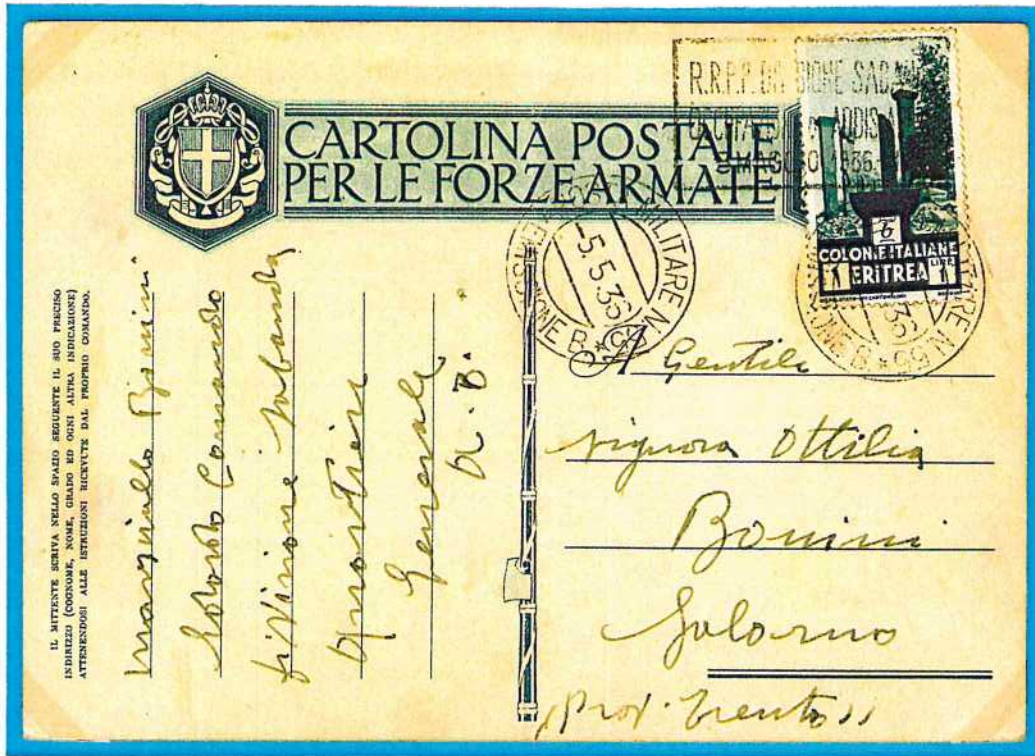 CARTOLINA POSTALE
PER LE FORZE ARMATE
R.R.P.P. DIVISIONE SABAUDA
ADDIS
MAGGIO 1936
COLONIE ITALIANE
ERITREA
LIRE
1 1
POSTA MILITARE N. 55
-5.5.36
SEZIONE B
IL MITTENTE SCRIVA NELLO SPAZIO SEGUENTE IL SUO PRECISO
INDIRIZZO (COGNOME, NOME, GRADO ED OGNI ALTRA INDICAZIONE)
ATTENENDOSI ALLE ISTRUZIONI RICEVUTE DAL PROPRIO COMANDO.
Bonini
Comando
Divisione Sabauda
Quartier
Generale
A. O.
A Gentile
signora Ottilia
Bonini
Salorno
(Prov. Trento)